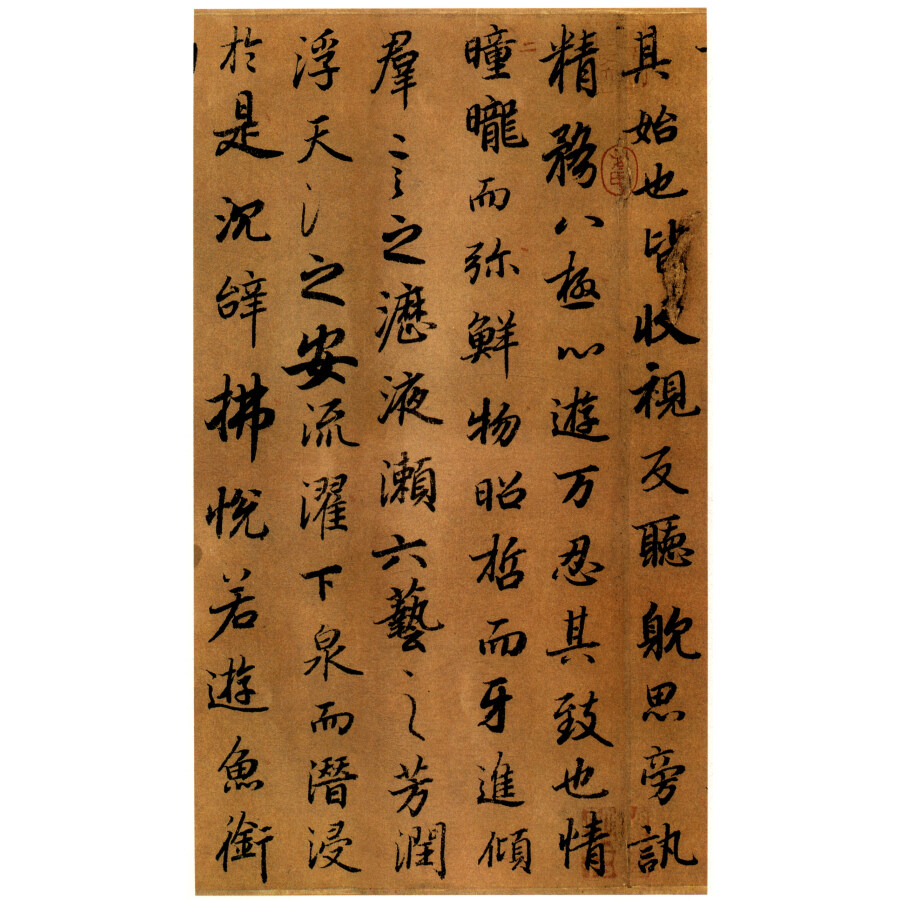 其始也皆收視反聽躭思旁訊
精務八極心遊万忍其致也情
曈曨而弥鮮物昭哲而牙進傾
羣言之瀝液瀬六藝之芳潤
浮天淵之安流濯下泉而潛浸
於是沉辝拂悦若遊魚銜